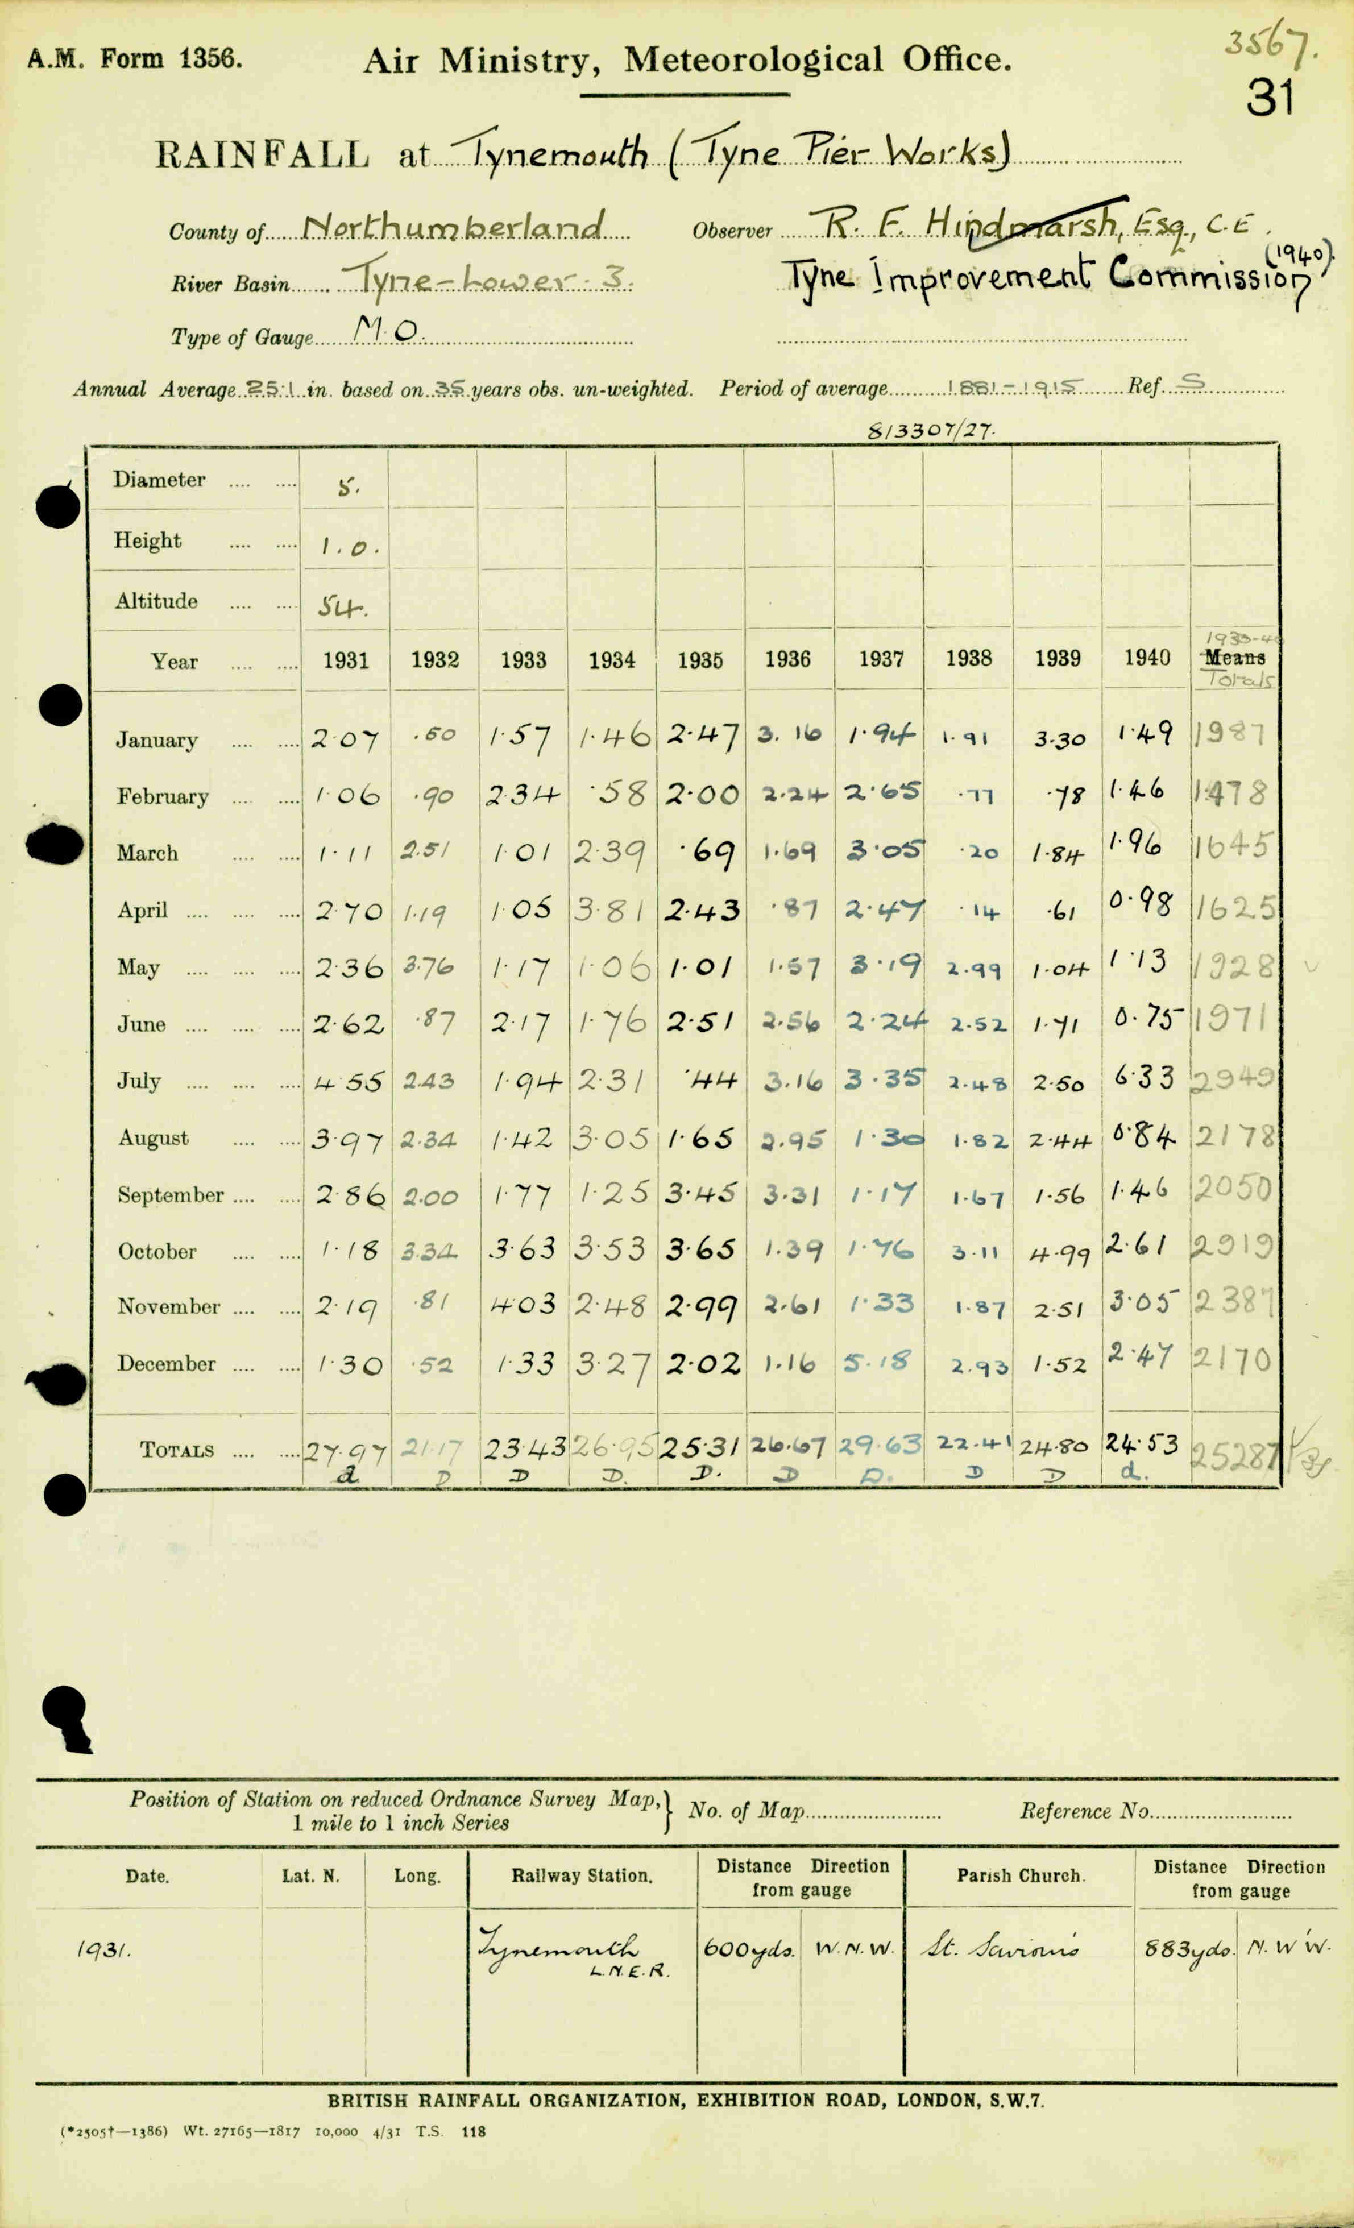 3567.
A.M. Form 1356. Air Ministry, Meteorological Office.
31
RAINFALL at Tynemouth (Tyne Pier Works)
County of Northumberland Observer R. F. Hindmarsh, Esq., C.E.
River Basin Tyne-Lower 3. Tyne Improvement Commission (1940)
Type of Gauge M.O.
Annual Average 25.1 in. based on 35 years obs. un-weighted. Period of average 1881-1915 Ref. S
813307/27.
Diameter 5.
Height 1.0.
Altitude 54.
Year 1931 1932 1933 1934 1935 1936 1937 1938 1939 1940 Means Totals
January 2.07 .50 1.57 1.46 2.47 3.16 1.94 1.91 3.30 1.49 1987
February 1.06 .90 2.34 .58 2.00 2.24 2.65 .77 .78 1.46 1478
March 1.11 2.51 1.01 2.39 .69 1.69 3.05 .20 1.84 1.96 1645
April 2.70 1.19 1.05 3.81 2.43 .87 2.47 .14 .61 0.98 1625
May 2.36 3.76 1.17 1.06 1.01 1.57 3.19 2.99 1.04 1.13 1928
June 2.62 .87 2.17 1.76 2.51 2.56 2.24 2.52 1.71 0.75 1971
July 4.55 2.43 1.94 2.31 .44 3.16 3.35 2.48 2.50 6.33 2949
August 3.97 2.34 1.42 3.05 1.65 2.95 1.30 1.82 2.44 0.84 2178
September 2.86 2.00 1.77 1.25 3.45 3.31 1.17 1.67 1.56 1.46 2050
October 1.18 3.34 3.63 3.53 3.65 1.39 1.76 3.11 4.99 2.61 2919
November 2.19 .81 4.03 2.48 2.99 2.61 1.33 1.87 2.51 3.05 2387
December 1.30 .52 1.33 3.27 2.02 1.16 5.18 2.93 1.52 2.47 2170
TOTALS 27.97 21.17 23.43 26.95 25.31 26.67 29.63 22.41 24.80 24.53 25287
d D D D. D. D D. D D d.
Position of Station on reduced Ordnance Survey Map, } No. of Map Reference No.
1 mile to 1 inch Series
Date. Lat. N. Long. Railway Station. Distance Direction from gauge Parish Church. Distance Direction from gauge
1931. Tynemouth 600yds. W.N.W. St. Saviour's 883yds. N.W'W.
L.N.E.R.
BRITISH RAINFALL ORGANIZATION, EXHIBITION ROAD, LONDON, S.W.7.
(*2505†—1386) Wt. 27165—1817 10,000 4/31 T.S. 118